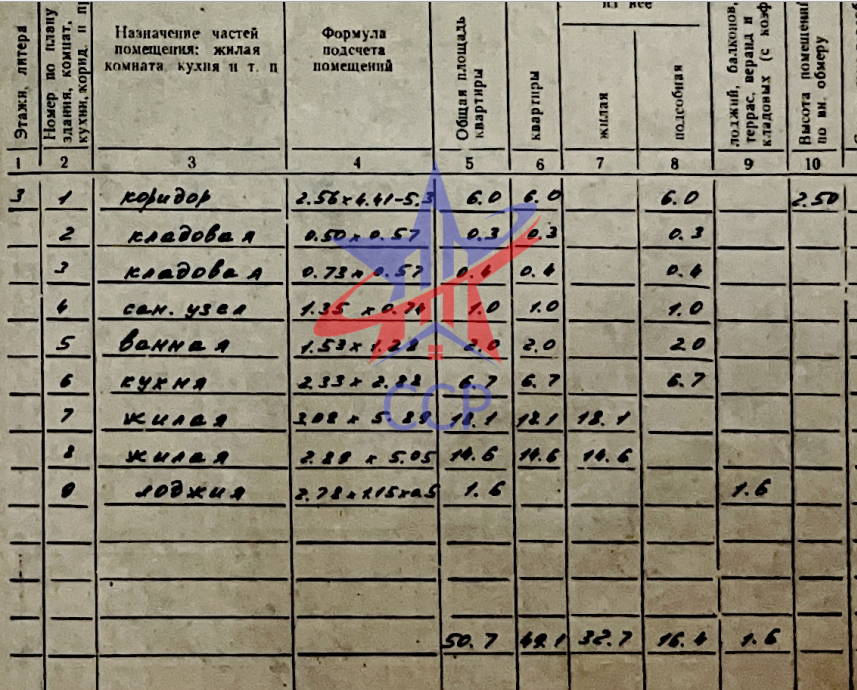 из нее
Этажи, литера
Номер по плану здания, комнат, кухни, корид. и пр
Назначение частей
помещения: жилая
комната, кухня и т. п
Формула
подсчета
помещений
Общая площадь
квартиры
квартиры
жилая
подсобная
лоджий, балконов, террас, веранд и кладовых (с коэф
Высота помещений по вн. обмеру
1 2 3 4 5 6 7 8 9 10
3 1 коридор 2.56x4.41-5.3 6.0 6.0 6.0 2.50
2 кладовая 0.50x0.57 0.3 0.3 0.3
3 кладовая 0.73x0.57 0.4 0.4 0.4
4 сан. узел 1.35 x 0.74 1.0 1.0 1.0
5 ванная 1.53x1.28 2.0 2.0 2.0
6 кухня 2.33x2.88 6.7 6.7 6.7
7 жилая 3.08 x 5.89 18.1 18.1 18.1
8 жилая 2.89 x 5.05 14.6 14.6 14.6
9 лоджия 2.78x1.15x0.5 1.6 1.6
50.7 49.1 32.7 16.4 1.6
ССР